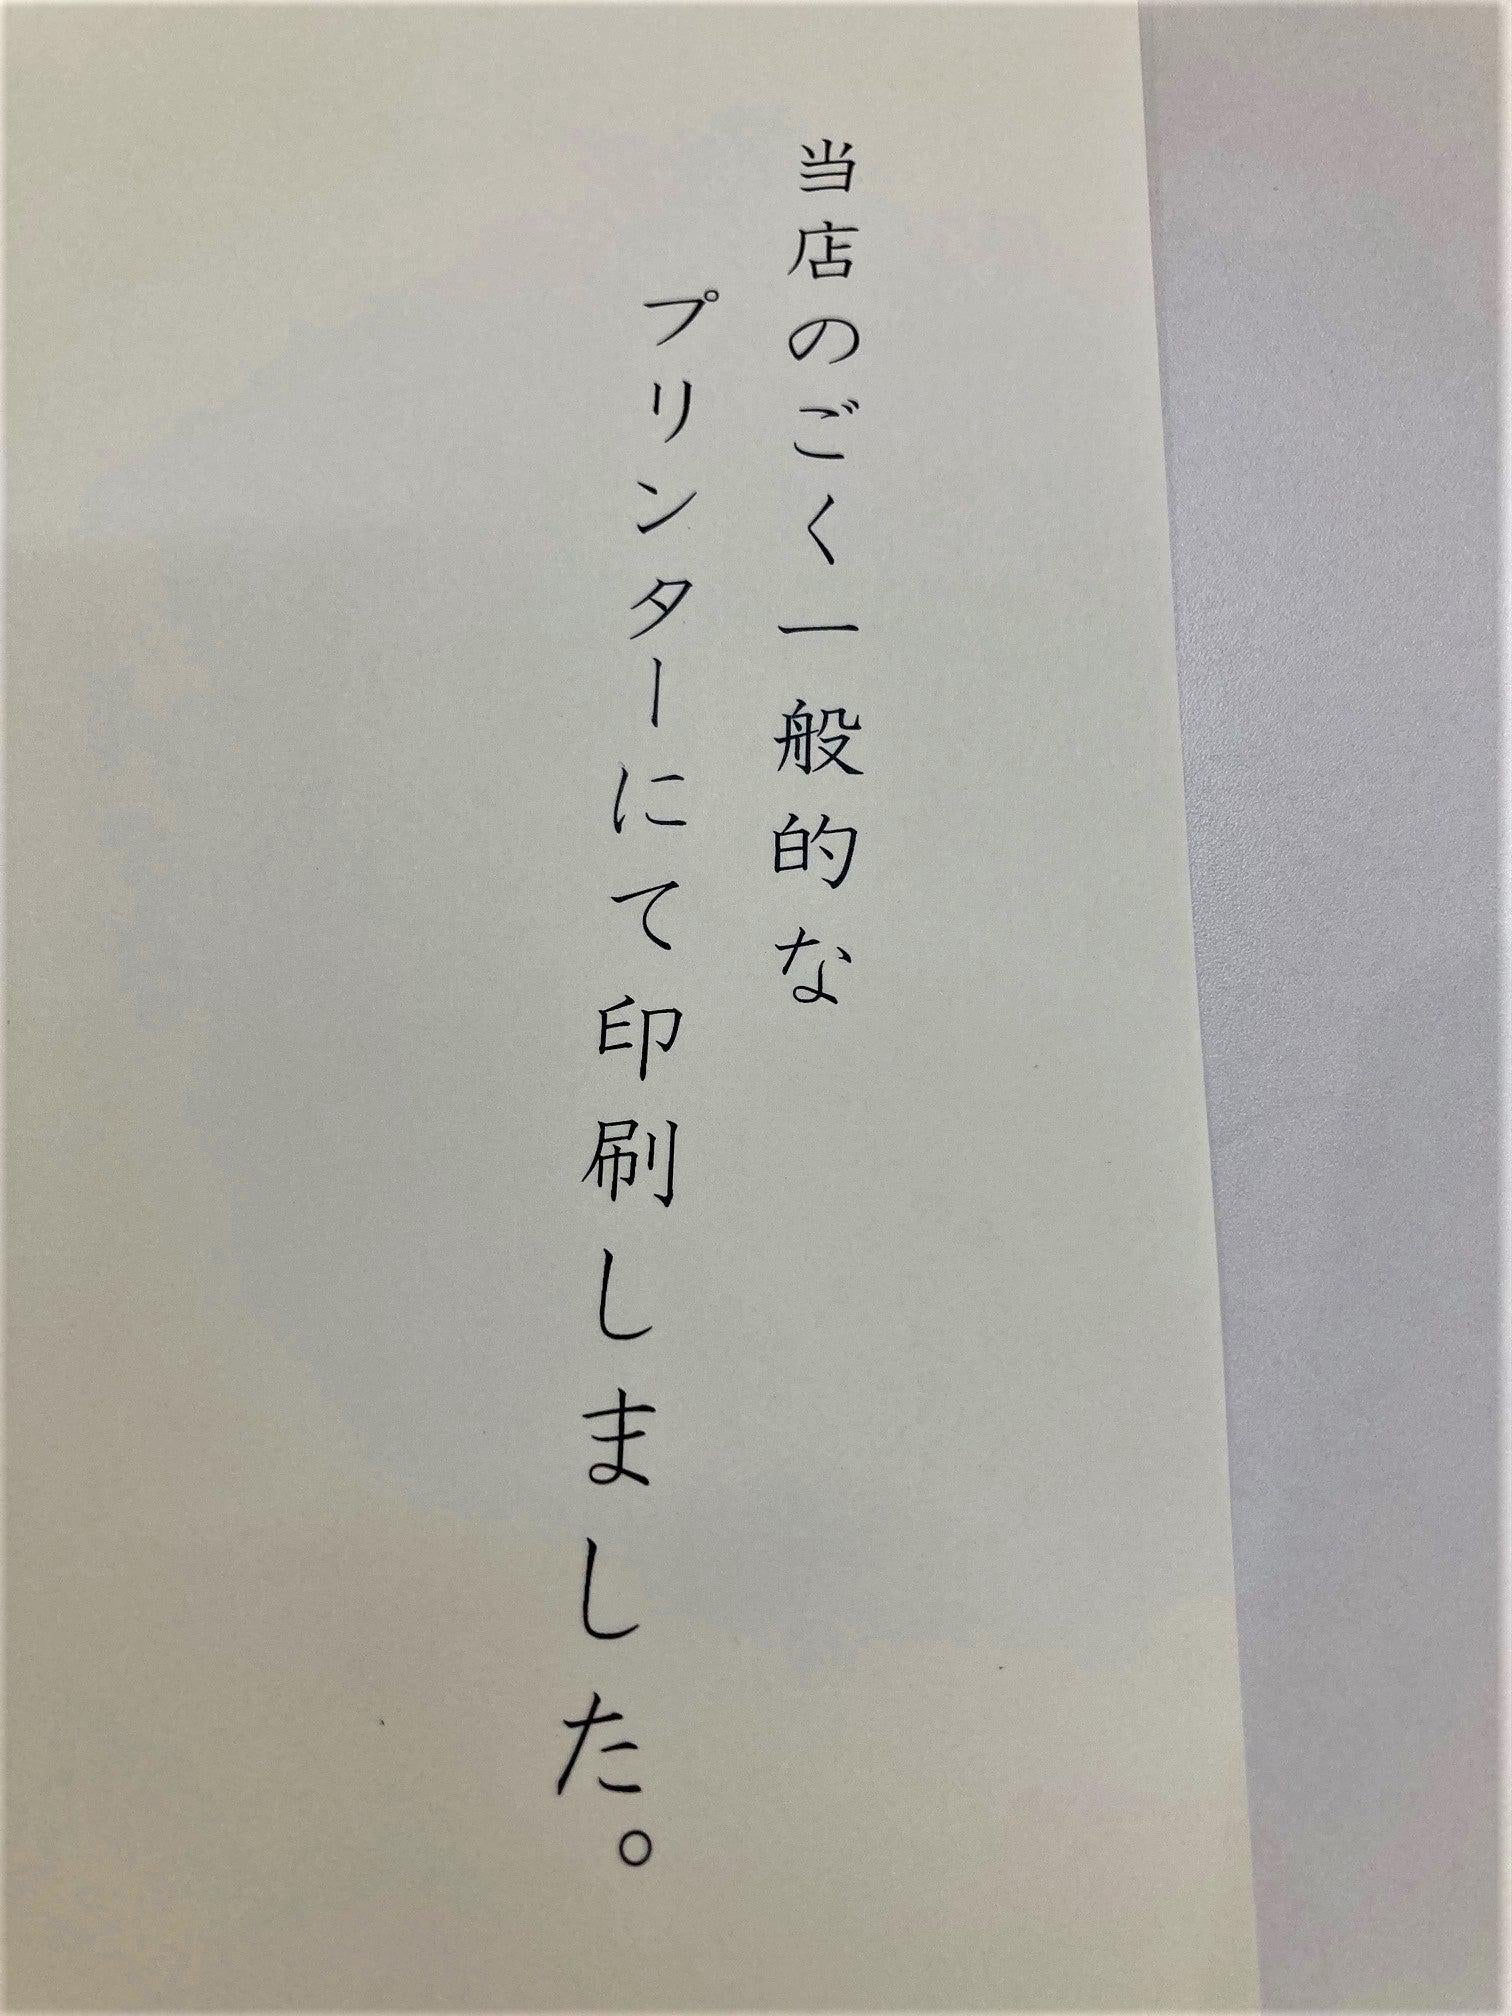 当店のごく一般的な
プリンターにて印刷しました。